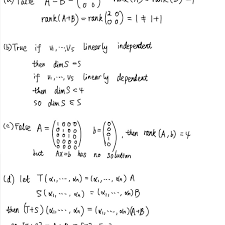 (a) False A = B = (
0 0)
rank(A+B) = rank (2 0
0 0) = 1 ≠ 1+1
(b) True if v₁,⋯,v₅ linearly independent
then dim S = 5
if v₁,⋯,v₅ linearly dependent
then dim S < 5
so dim S ≤ 5
(c) False A = (1 0 0 0
0 1 0 0
0 0 1 0
0 0 0 0) b = (0
0
0
1), then rank (A, b) = 4
but Ax=b has no solution
(d) let T(α₁,⋯,αₙ) = (α₁,⋯,αₙ) A
S(α₁,⋯,αₙ) = (α₁,⋯,αₙ) B
then (T+S)(α₁,⋯,αₙ) = (α₁,⋯,αₙ)(A+B)